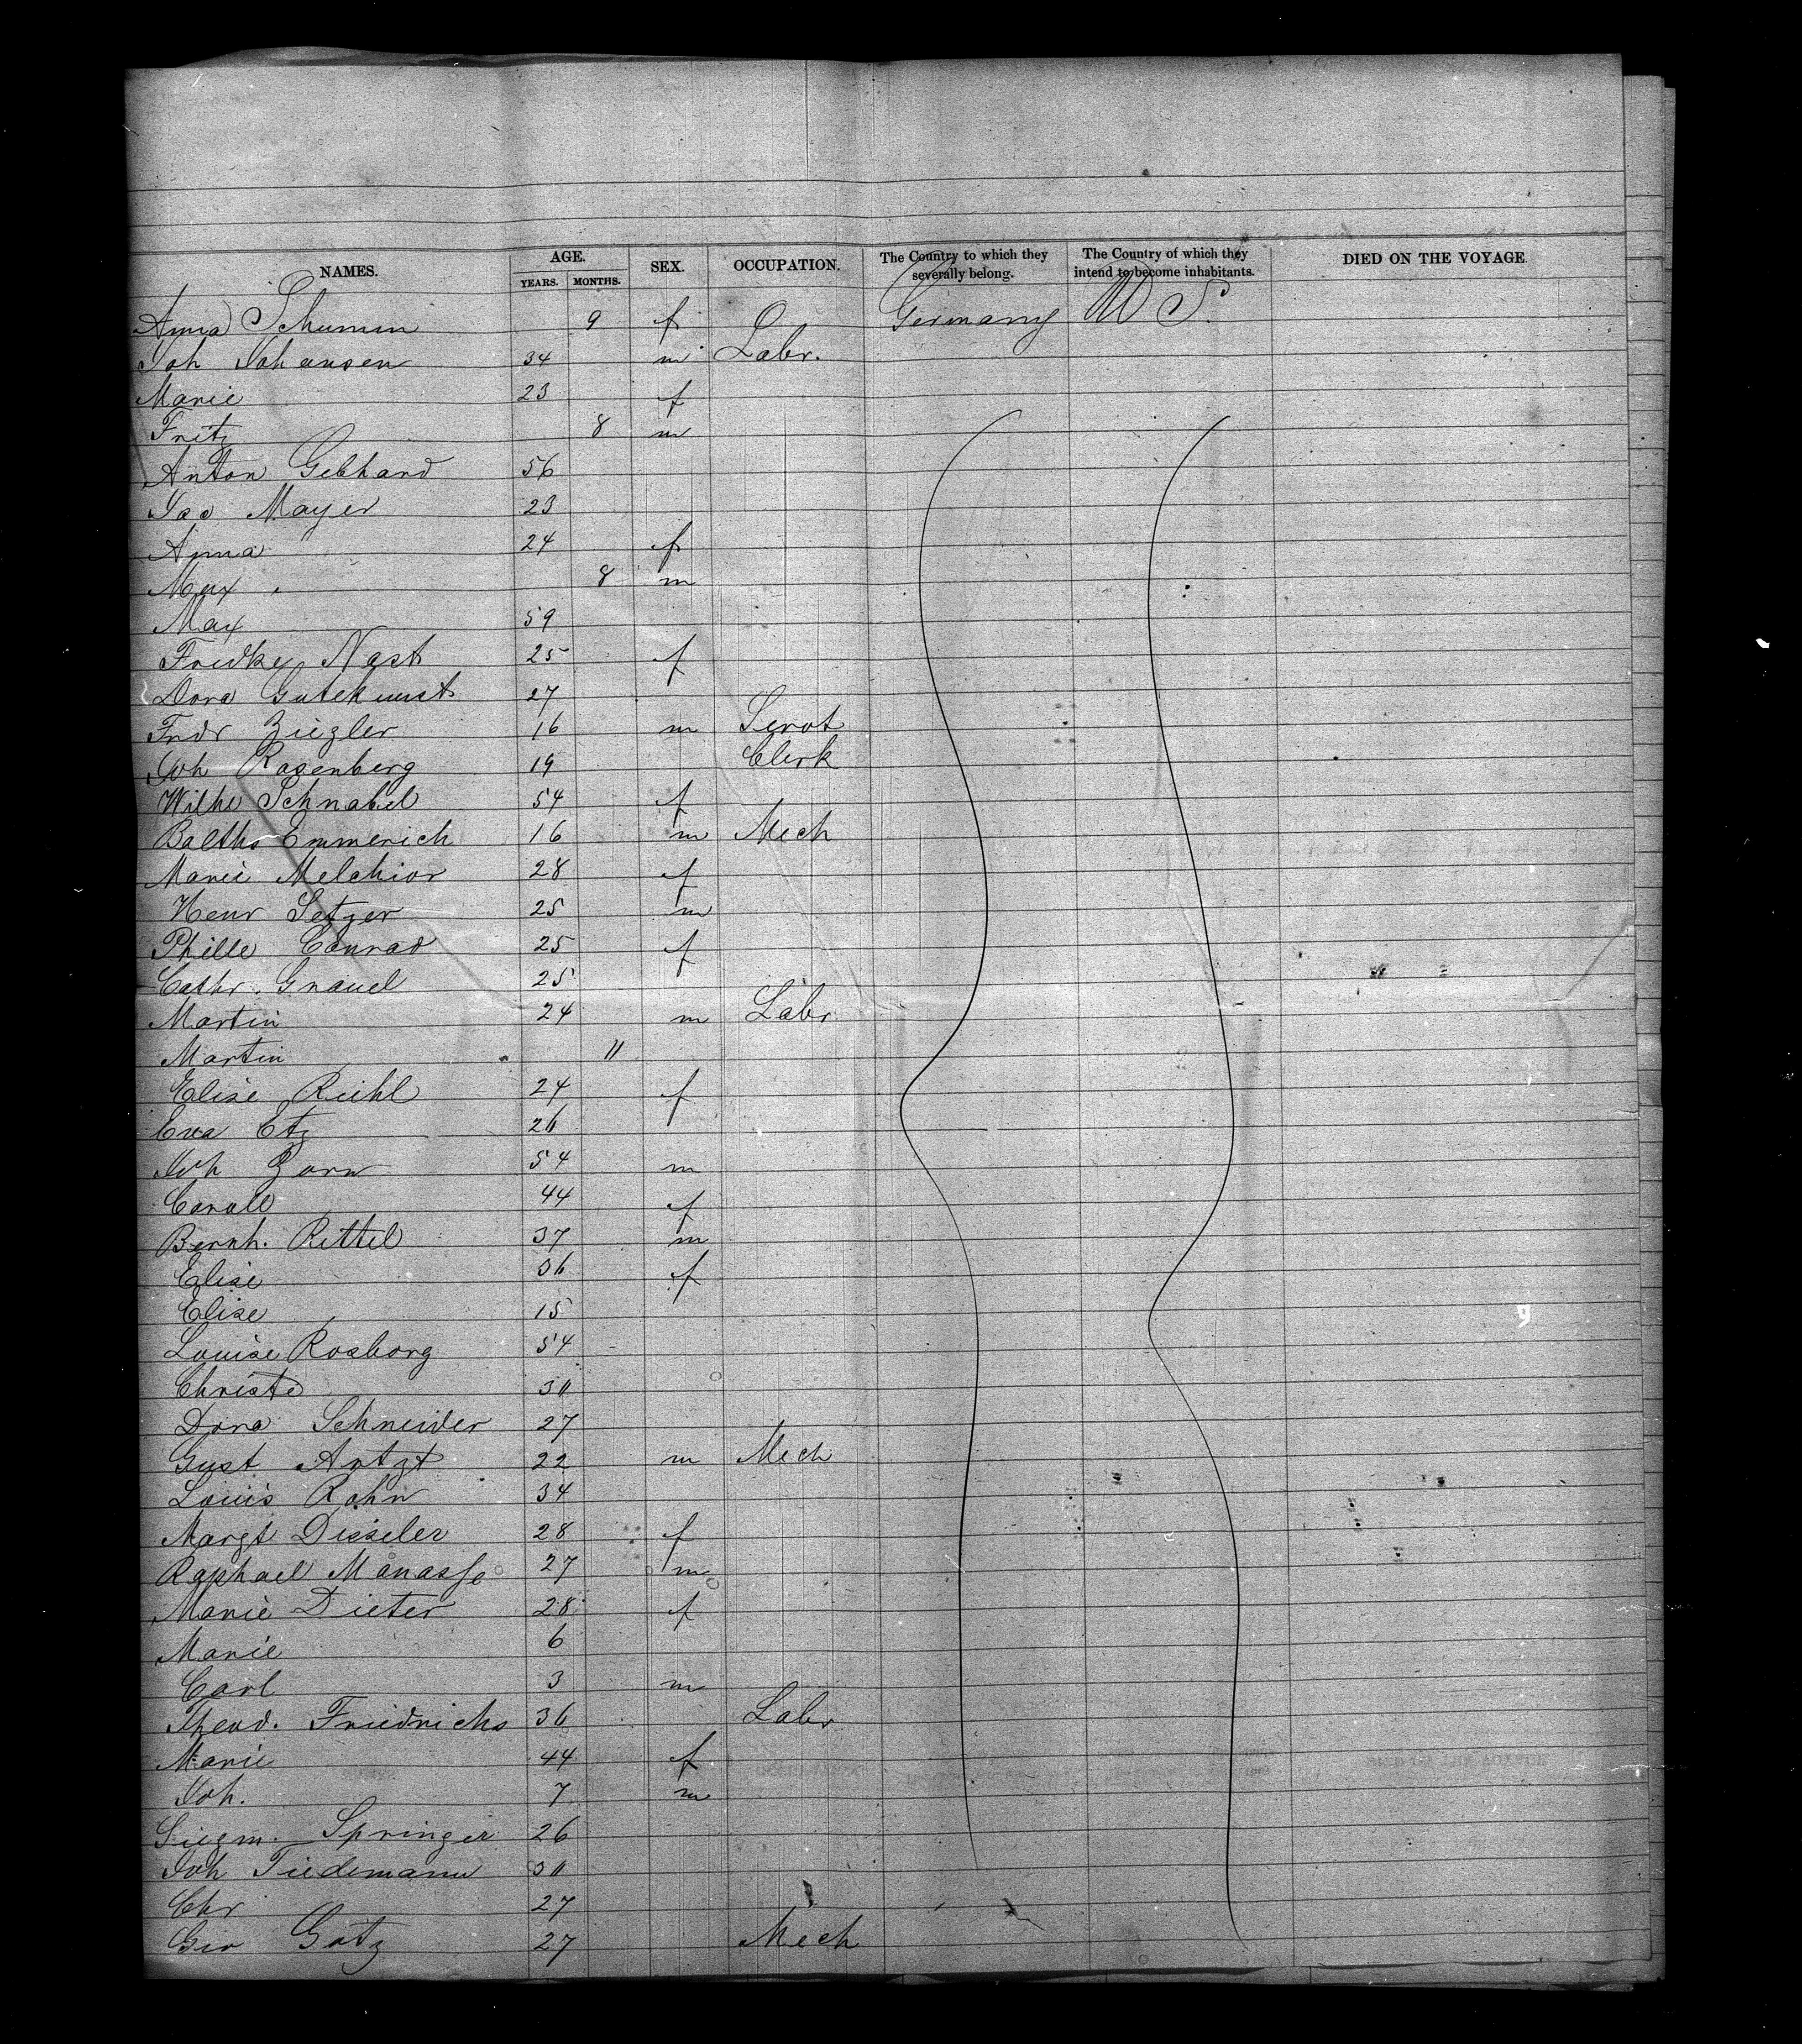 NAMES. AGE. YEARS. MONTHS. SEX. OCCUPATION. The Country to which they severally belong. The Country of which they intend to become inhabitants. DIED ON THE VOYAGE
Anna Schumm 9 f Germany U S.
Joh Johansen 34 m Labr.
Marie 23 f
Fritz 8 m
Anton Gebhard 56
Jac Mayer 23
Anna 24 f
Max 8 m
Max 59
Fredke Nast 25 f
Dora Gutekunst 27
Fridr Ziegler 16 m Servt
Joh Rosenberg 19 Clerk
Wilhe Schnabel 54 f
Balths Emmerich 16 m Mech
Marie Melchior 28 f
Henr Setzer 25 m
Phille Conrad 25 f
Cathr. Gnauel 25
Martin 24 m Labr
Martin 11
Elise Riehl 24 f
Eva Etz 26
Joh Zorn 54 m
Carole 44 f
Bernh. Rittel 37 m
Elise 36 f
Elise 15
Louise Rosborg 54
Christe 30
Dora Schneider 27
Gust Artzt 22 m Mech
Louis Rohn 34
Margt Disseler 28 f
Raphael Manasse 27 m
Marie Dieter 28 f
Marie 6
Carl 3 m
Theod. Friedrichs 36 Labr
Marie 44 f
Joh. 7 m
Siegm. Springer 26
Joh Tiedemann 30
Chr 27
Geo Götz 27 Mech